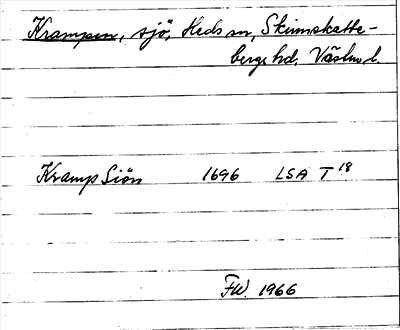 Krampen, sjö, Heds sn, Skinnskatte-
bergs hd. Västm. l.
Kramp Siön 1696 LSA T 18
FW. 1966